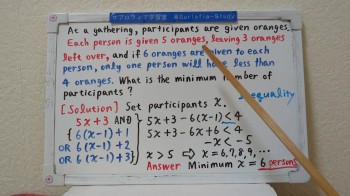 サブロライブ学習室 @Surialela-Study
At a gathering, participants are given oranges.
Each person is given 5 oranges, leaving 3 oranges
left over, and if 6 oranges are given to each
person, only one person will have less than
4 oranges. What is the minimum number of
participants?
inequality
[Solution] Set participants x.
5x+3 AND
{ 6(x-1)+1
OR 6(x-1)+2
OR 6(x-1)+3}
5x+3-6(x-1)<4
5x+3-6x+6<4
-x<-5
x>5 ⇒ x=6,7,8,9,...
Answer Minimum x=6 persons